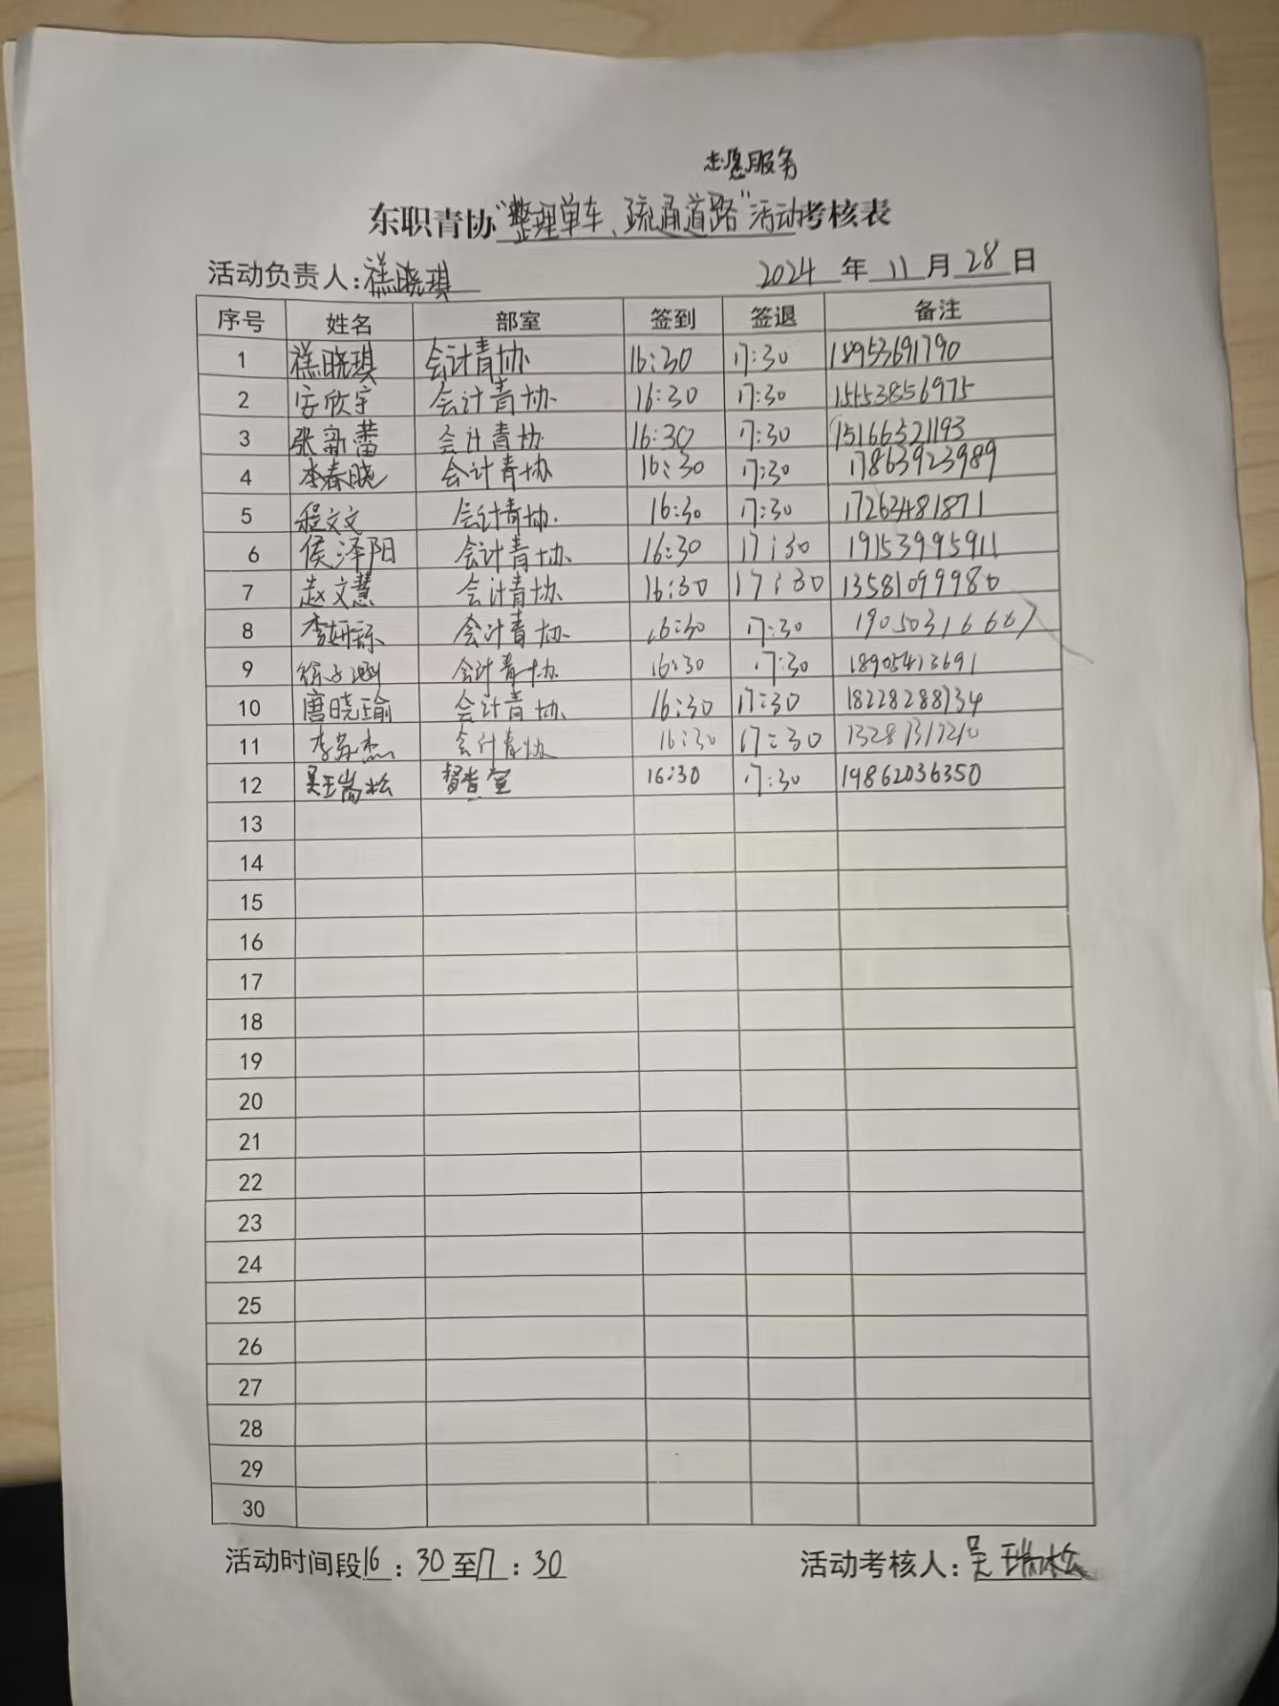 志愿服务
东职青协“整理单车、疏通道路”活动考核表
活动负责人:禚晓琪 2024 年 11 月 28 日
序号 姓名 部室 签到 签退 备注
1 禚晓琪 会计青协 16:30 17:30 18953691790
2 安欣宇 会计青协 16:30 17:30 15153856975
3 张新蕾 会计青协 16:30 17:30 15166521193
4 李春晓 会计青协 16:30 17:30 17863923989
5 程文文 会计青协 16:30 17:30 17262481871
6 侯泽阳 会计青协 16:30 17:30 19153995911
7 赵文慧 会计青协 16:30 17:30 13581099980
8 会计青协 16:30 17:30 19050316667
9 会计青协 16:30 17:30 18905413691
10 唐晓瑜 会计青协 16:30 17:30 18228288734
11 会计青协 16:30 17:30
12 吴瑞松 督查室 16:30 17:30 19862036350
13
14
15
16
17
18
19
20
21
22
23
24
25
26
27
28
29
30
活动时间段16:30至17:30 活动考核人:吴瑞松